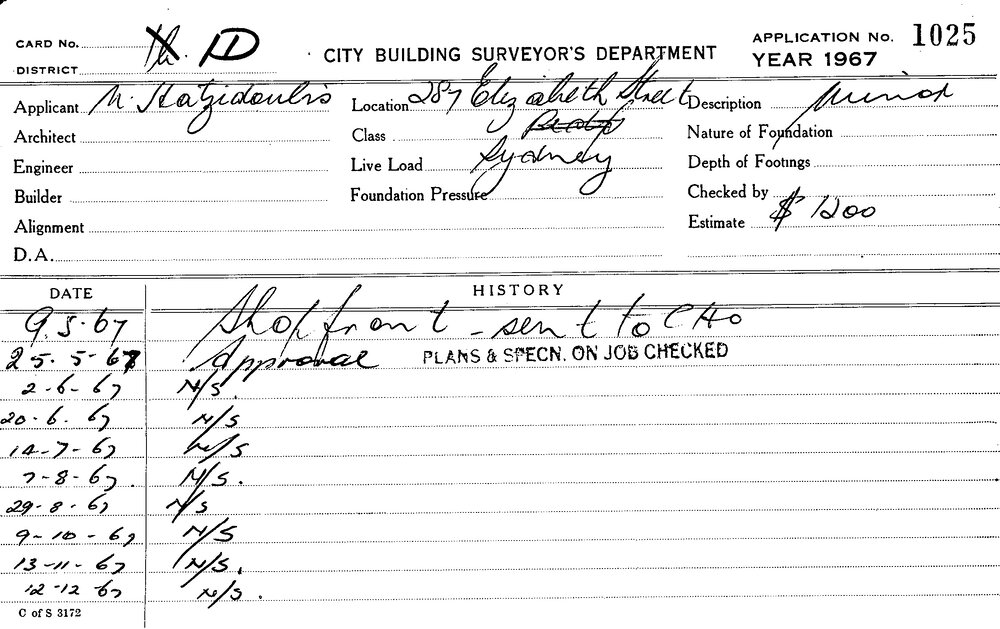 CARD No. 1D
CITY BUILDING SURVEYOR'S DEPARTMENT
APPLICATION No. 1025
DISTRICT
YEAR 1967
Applicant N. Hatzidoulis Location 287 Elizabeth Street Description Minor
Architect Class Nature of Foundation
Engineer Live Load Sydney Depth of Footings
Builder Foundation Pressure Checked by
Alignment Estimate $ 1200
D.A.
DATE HISTORY
9.5.67 Shopfront - sent to CHO
25.5.67 Approval PLANS & SPECN. ON JOB CHECKED
2-6-67 N/S.
20.6.67 N/S
14-7-67 N/S
7-8-67. N/S.
29-8-67 N/S
9-10-67 N/S
13-11-67 N/S.
12-12-67 N/S.
C of S 3172